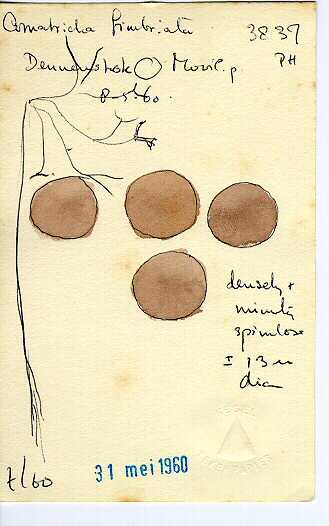 Comatricha fimbriata 3837
Dennenstok Movil. p PH
8-5-60.
densely +
minutely
spinulose
± 13 u
dia
7/60
31 mei 1960